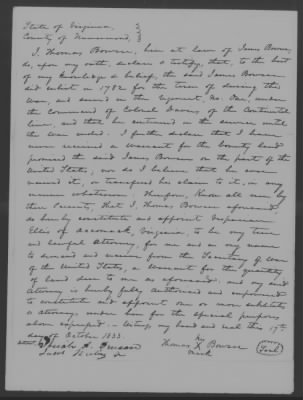 State of Virginia,
County of Nansemond,
I, Thomas Bowser, heir at law of James Bowser,
do, upon my oath, declare & testify, that, to the best
of my knowledge & belief, the said James Bowser
did enlist in 1782 for the term of during the
War, and served in the regiment No. under
the command of Colonel of the Continental
line, and that he continued in the service until
the war ended. I further declare that I have
never received a warrant for the bounty land
promised the said James Bowser on the part of the
United States; nor do I believe that he ever
received it, or transferred his claim to it, in any
manner whatsoever; therefore, Know all men by
these Presents, that I, Thomas Bowser aforesaid,
do hereby constitute and appoint
Ellis of Accomack, Virginia, to be my true
and lawful Attorney, for me and in my name
to demand and receive from the Secretary of War
of the United States, a Warrant for the quantity
of land due to me as aforesaid; and my said
Attorney is hereby fully authorised and empowered
to constitute and appoint one or more substitutes
or attorneys under him for the special purposes
above expressed. Witness my hand and seal this 17th
day of October 1833. his
Thomas X Bowser Seal
mark